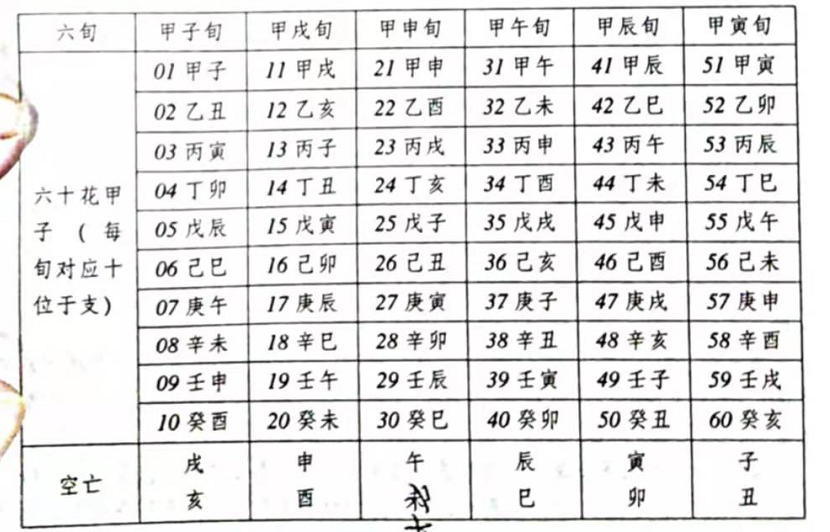 六旬 甲子旬 甲戌旬 甲申旬 甲午旬 甲辰旬 甲寅旬
01 甲子 11 甲戌 21 甲申 31 甲午 41 甲辰 51 甲寅
02 乙丑 12 乙亥 22 乙酉 32 乙未 42 乙巳 52 乙卯
03 丙寅 13 丙子 23 丙戌 33 丙申 43 丙午 53 丙辰
六十花甲 04 丁卯 14 丁丑 24 丁亥 34 丁酉 44 丁未 54 丁巳
子(每 05 戊辰 15 戊寅 25 戊子 35 戊戌 45 戊申 55 戊午
旬对应十 06 己巳 16 己卯 26 己丑 36 己亥 46 己酉 56 己未
位于支) 07 庚午 17 庚辰 27 庚寅 37 庚子 47 庚戌 57 庚申
08 辛未 18 辛巳 28 辛卯 38 辛丑 48 辛亥 58 辛酉
09 壬申 19 壬午 29 壬辰 39 壬寅 49 壬子 59 壬戌
10 癸酉 20 癸未 30 癸巳 40 癸卯 50 癸丑 60 癸亥
空亡 戌 申 午 辰 寅 子
亥 酉 巳 卯 丑